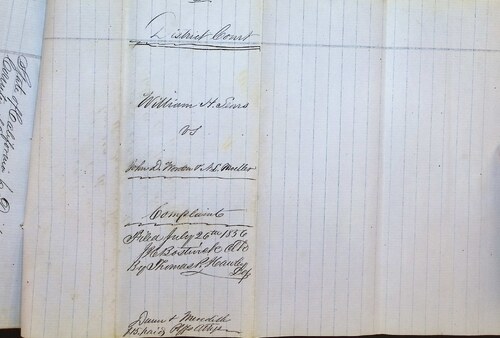 District Court
William H. Sears
vs
John D. & N. E.
Complaint
Filed July 26th 1856
J H Bostwick Clk
By Thomas P. Hawley
Dep
Dunn & Meredith
Plffs Attys
State of California
County